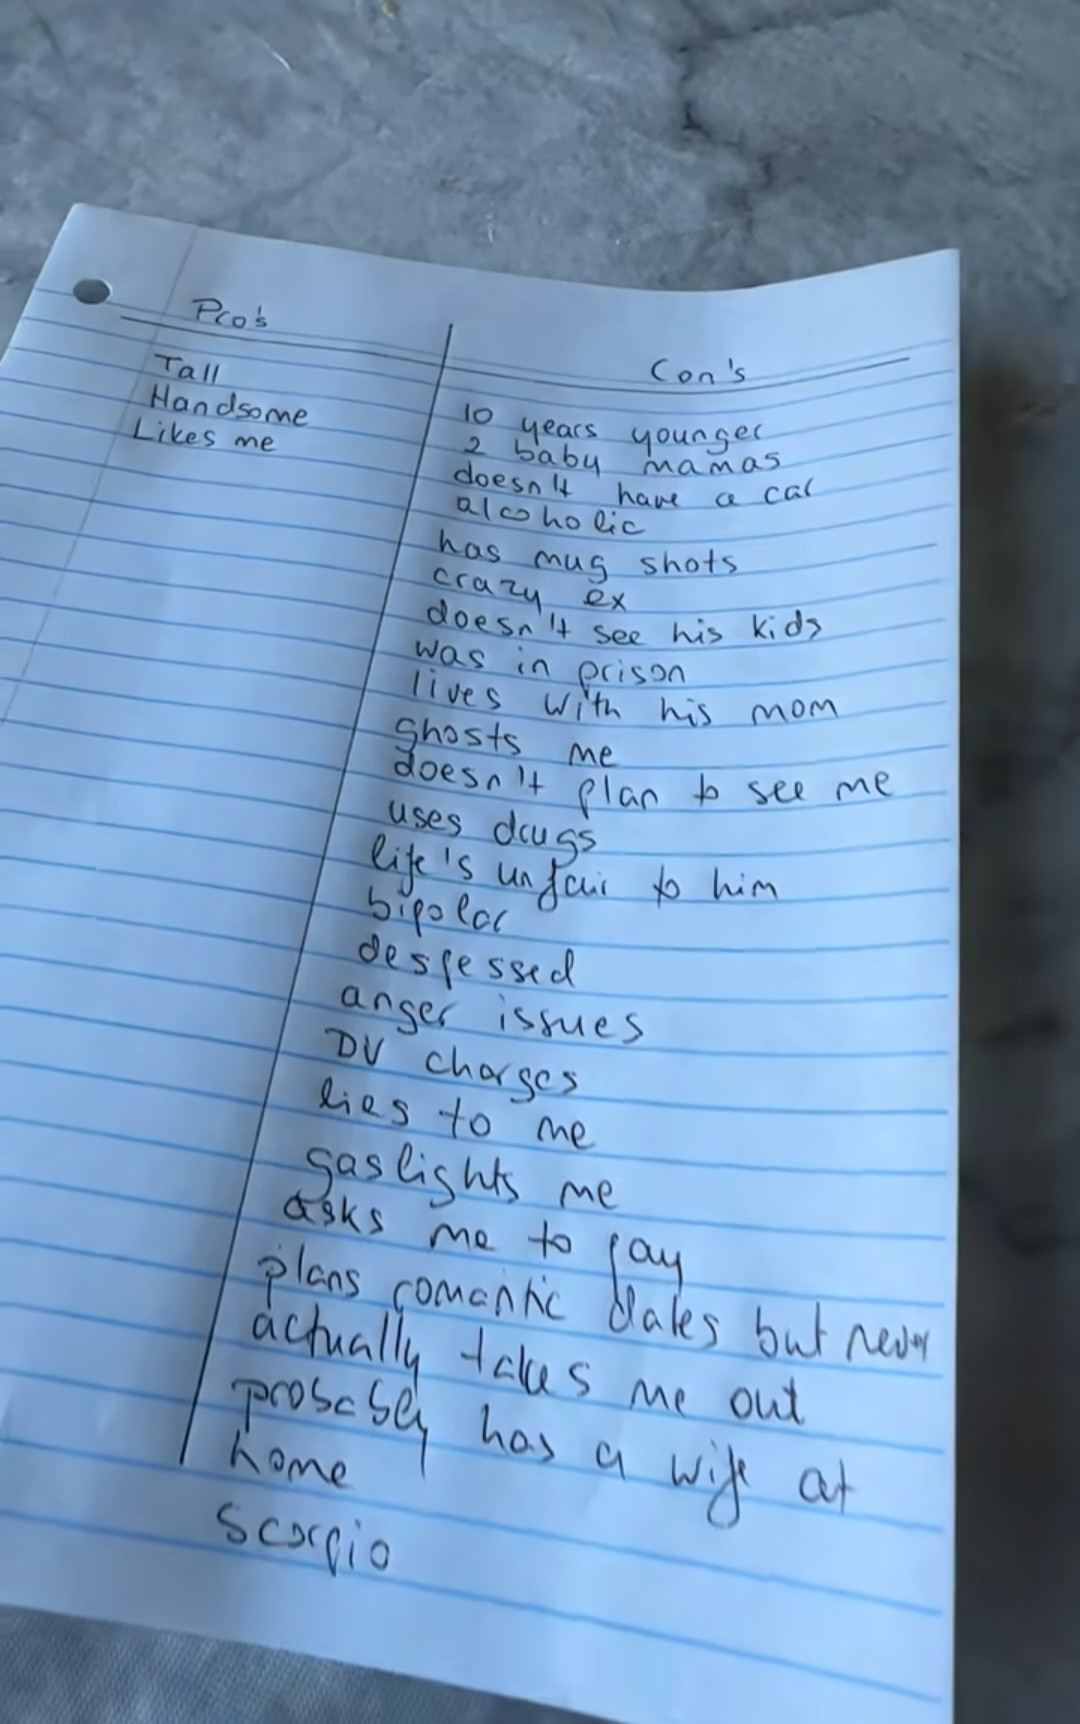 Pro's
Tall
Handsome
Likes me
Con's
10 years younger
2 baby mamas
doesn't have a car
alcoholic
has mug shots
crazy ex
doesn't see his kids
was in prison
lives with his mom
ghosts me
doesn't plan to see me
uses drugs
life's unfair to him
bipolar
despessed
anger issues
DV charges
lies to me
gaslights me
asks me to pay
plans romantic dates but never
actually takes me out
probably has a wife at
home
Scorpio